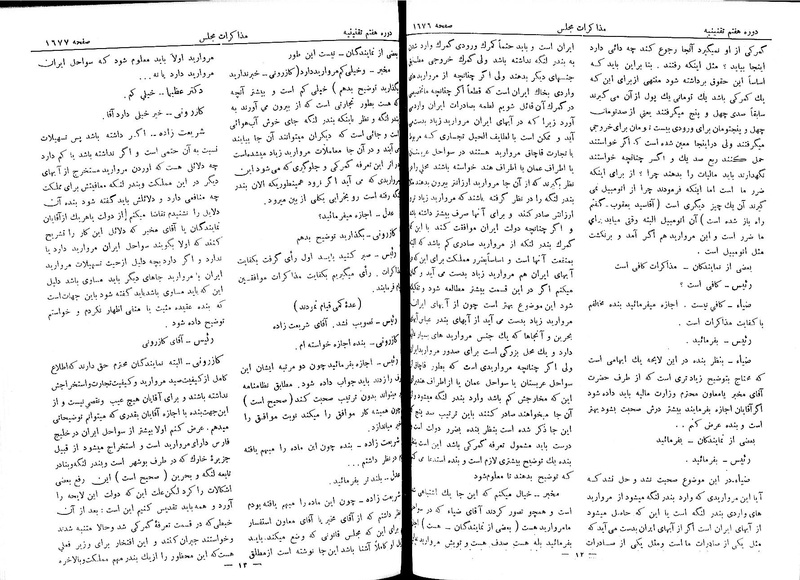 دوره هفتم تقنینیه
مذاکرات مجلس
صفحه ۱۶۷۶
گمرکی از او نمیگیرد آنجا رجوع کند چه دائی دارد
اینجا بیاید؟ مثل اینکه رفتند. بنا براین باید که
اساساً این حقوق برداشته شود منتهی از برای این که
یك گمرکی باشد یك تومانی یك پول از آن می گیرند
سابقاً صدی چهل و پنج میگرفتند یعنی از صد تومان
چهل و پنجتومان برای ورودی بیست تومان برای خروجی
میگرفتند ولی در اینجا معین شده است که اگر خواستند
حمل کنند ربع صد یك و اگر چنانچه خواستند
نگهدارند باید مالیات را بدهند چرا؟ از برای اینکه
ضرر ما است اما اینکه فرمودند چرا از اتومبیل نمی
گیرند آن یك چیز دیگری است (آقاسید یعقوب. گفتم
راه باز شده است) آن اتومبیل البته وقتی میاید برای
ما ضرر است و این مروارید هم اگر آمد و برنگشت
مثل اتومبیل است.
بعضی از نمایندگان ـ مذاکرات کافی است
رئیس ـ کافی است؟
ضیاء ـ کافی نیست. اجازه میفرمائید بنده مخالفم
با کفایت مذاکرات است.
رئیس ـ بفرمائید.
ضیاء ـ بنظر بنده در این لایحه یك ابهامی است
که محتاج بتوضیح زیادتری است که از طرف حضرت
آقای مخبر یا معاون محترم وزارت مالیه باید داده شود
اگر آقایان اجازه بفرمایند بیشتر درش صحبت بشود بهتر
است و بنده عرض کنم . .
بعضی از نمایندگان ـ بفرمائید
رئیس ـ بفرمائید.
ضیاء. در این موضوع صحبت نشد و حل نشد که
آیا این مرواریدی که وارد بندر لنگه میشود از مروارید
های واردی بندر لنگه است یا این که حاصل میشود
از آبهای ایران است اگر از آبهای ایران بدست می آید که
مثل یکی از صادرات ما است و مثل یکی از صادرات
ایران است و باید حتماً گمرك ورودی گمرك وارد شدن
به بندر لنگه نداشته باشد ولی گمرك خروجی مطابق
جنسهای دیگر بدهند ولی اگر چنانچه از مرواریدهای
واردی بخاك ایران است که قطعاً اگر چنانچه ما تخفیفی
در گمرك آن قائل شویم لطمه بصادرات ایران وارد
آورد زیرا که در آبهای ایران مروارید زیاد بدست
آید و ممکن است با لطایف الحیل تجاری که مربوط
با تجارت قاچاق مروارید هستند در سواحل عربستان
یا اطراف عمان یا اطراف هند خواسته باشند جلب
نظر بگیرند که از آن جا مروارید ارزانتر بیرون بدهند
بندر لنگه را در نظر گرفته باشند که مروارید زیاد
ارزانتر صادر کنند و برای آنها صرف بیشتر داشته باشد
و اگر چنانچه دولت ایران موافقت کند با این که
گمرك بندر لنگه از مروارید صادری کم باشد که البته
بمنفعت آنها است و اساساً بضرر مملکت برای این که
آبهای ایران هم مروارید زیاد بدست می آید و گمان
میکنم اگر در این قسمت بیشتر مطالعه شود
شود این موضوع بهتر است چون از آبهای ایران
مروارید زیاد بدست می آید از آبهای بندر عباس
بحرین و آنجاها که یك جنس مروارید های بسیار
دارد و یك محل بزرگی است برای صدور مروارید
ولی اگر چنانچه مرواریدی است که بطور قاچاق
سواحل عربستان یا سواحل عمان یا از اطراف هند
این که مخارجش کم باشد وارد بندر لنگه میشود
آن جا میخواهند صادر کنند باین ترتیب سد بنج
این جا ذکر شده است بنظر بنده بضرر دولت است
درست باید مشمول تعرفه گمرکی باشد این است بنظر
بنده یك توضیح بیشتری لازم است و بنده استدعا می کنم
که توضیح بدهند تا معلوم شود
مخبر ... خیال میکنم که این جا یك اشتباهی
است و همچو تصور کردند آقای ضیاء که در سواحل
ما مروارید هست (بعضی از نمایندگان ـ هست) اجازه
بفرمائید بله هست صدف هست و تویش مروارید
ـ ۱۲ ـ
دوره هفتم تقنینیه
مذاکرات مجلس
صفحه ۱۶۷۷
بعضی از نمایندگان ـ نیست این طور
مخبر ـ وخیلی کم مروارید دارد (کازرونی .. خبر ندارید
بگذارید توضیح بدهم) خیلی کم است و بیشتر آنچه
که هست بطور تجارتی است که از بیرون می آورند به
بندر لنگه و نظر باینکه بندر لنگه جای خوش آب و هوائی
است و جائی است که دیگران میتوانند آن جا بیایند
می آیند و در آن جا معاملات مروارید زیاد میشده است
در اثر این تعرفه گمرکی و جلوگیری که می شود این
مرواریدی که می آید اگر نرود همینطوریکه الان بندر
لنگه رفته است رو بخرابی بکلی از بین میرود.
عدل ـ اجازه میفرمائید؟
کازرونی ـ بگذارید توضیح بدهم
رئیس ـ صبر کنید باید اول رأی گرفت بکفایت
مذاکرات . رأی میگیریم بکفایت مذاکرات موافقین
قیام فرمایند.
(عده کمی قیام نمودند)
رئیس ـ تصویب نشد. آقای شریعت زاده
کازرونی ـ بنده اجازه خواسته ام.
رئیس ـ اجازه بفرمائید چون دو مرتبه ایشان این
حرف را زدند باید جواب داده شود. مطابق نظامنامه
نمیتواند بدون ترتیب صحبت کند (صحیح است)
چون همیشه کار موافق را میکنند نوبت موافق را
خبر میاندازد.
شریعت زاده ـ بنده چون این ماده را مبهم یافته
بودم در نظر داشتم ...
عدل .. بلندتر بفرمائید.
شریعت زاده ـ چون این ماده را مبهم یافته بودم
نظر داشتم که از آقای مخبر یا آقای معاون استفسار
کنم برای این که مجلس قانونی که وضع میکند. باید
اول کاملاً آشنا باشد این جا نوشته است از مطلق
مروارید اولا باید معلوم شود که سواحل ایران
مروارید دارد یا نه ...
دکتر عظیما .. خیلی کم.
کازرونی .. خبر خیلی دارد آقا.
شریعت زاده .. اگر داشته باشد پس تسهیلات
نسبت به آن حتمی است و اگر نداشته باشد یا کم دارد
چه دلائلی هست که آوردن مروارید مستخرج از آبهای
دیگر در این مملکت و بندر لنگه معافیتش برای مملکت
چه منافعی دارد و دلائلش باید گفته شود بنده آن
دلایل را نشنیدم تقاضا میکنم از دولت یا هر یك از آقایان
نمایندگان یا آقای مخبر که دلائل این کار را تشریح
کنند که اولا بگویند سواحل ایران مروارید دارد یا
ندارد و اگر دارد بچه دلیل از حیث تسهیلات مروارید
ایران با مروارید جاهای دیگر باید مساوی باشد دلیل
این که باید مساوی باشد باید گفته شود باین جهات است
که بنده عقیده مثبت یا منفی اظهار نکردم و خواستم
توضیح داده شود.
رئیس ـ آقای کازرونی
کازرونی. ـ البته نمایندگان محترم حق دارند که اطلاع
کامل از کیفیت صید مروارید و کیفیت تجارت و استخراجش
نداشته باشند و برای آقایان هیچ عیب و نقصی نیست و از
این جهت بنده با اجازه آقایان بقدری که میتوانم توضیحاتی
میدهم. عرض کنم اولا بیشتر از سواحل ایران در خلیج
فارس دارای مروارید است و استخراج میشود از قبیل
جزیره خارك که در طرف بوشهر است و بندر لنگه و بنادر
تابعه لنگه و بحرین (صحیح است) این رفع بعضی
اشکالات را کرد لکن علت این که دولت این لایحه را
آورد و همه باید تقدیس کنیم این است: بعد از آن
خبطی که در قسمت تعرفۀ گمرکی شد و حالا متنبه شدند
وخواستند جبران کنند و این افتخار برای وزیر فعلی
هست که این محظور را از یك بندر مهم مملکت و بالاخره
ـ ۱۳ ـ